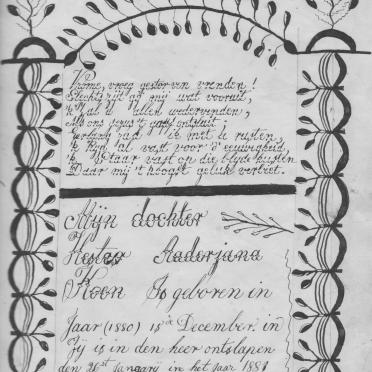 Vrome, vroeg gestorven vrinden!
Slechts zijt gij mij wat vooruit,
'k Zal U allen wedervinden,
als ons Jezus 't graf ontsluit;
Verlang zad 'k met U rusten,
'k Kom al vast voor d' eeuwigheid,
'k Staar vast op die blyde kusten
Daar mij 't hoogst geluk verbeet.
Mijn dochter
Hester Aadorjana
Koen Is geboren in
Jaar (1880) 15de December. in
Zij is in den heer ontslapen
den 28st Januarij in het Jaar 1881